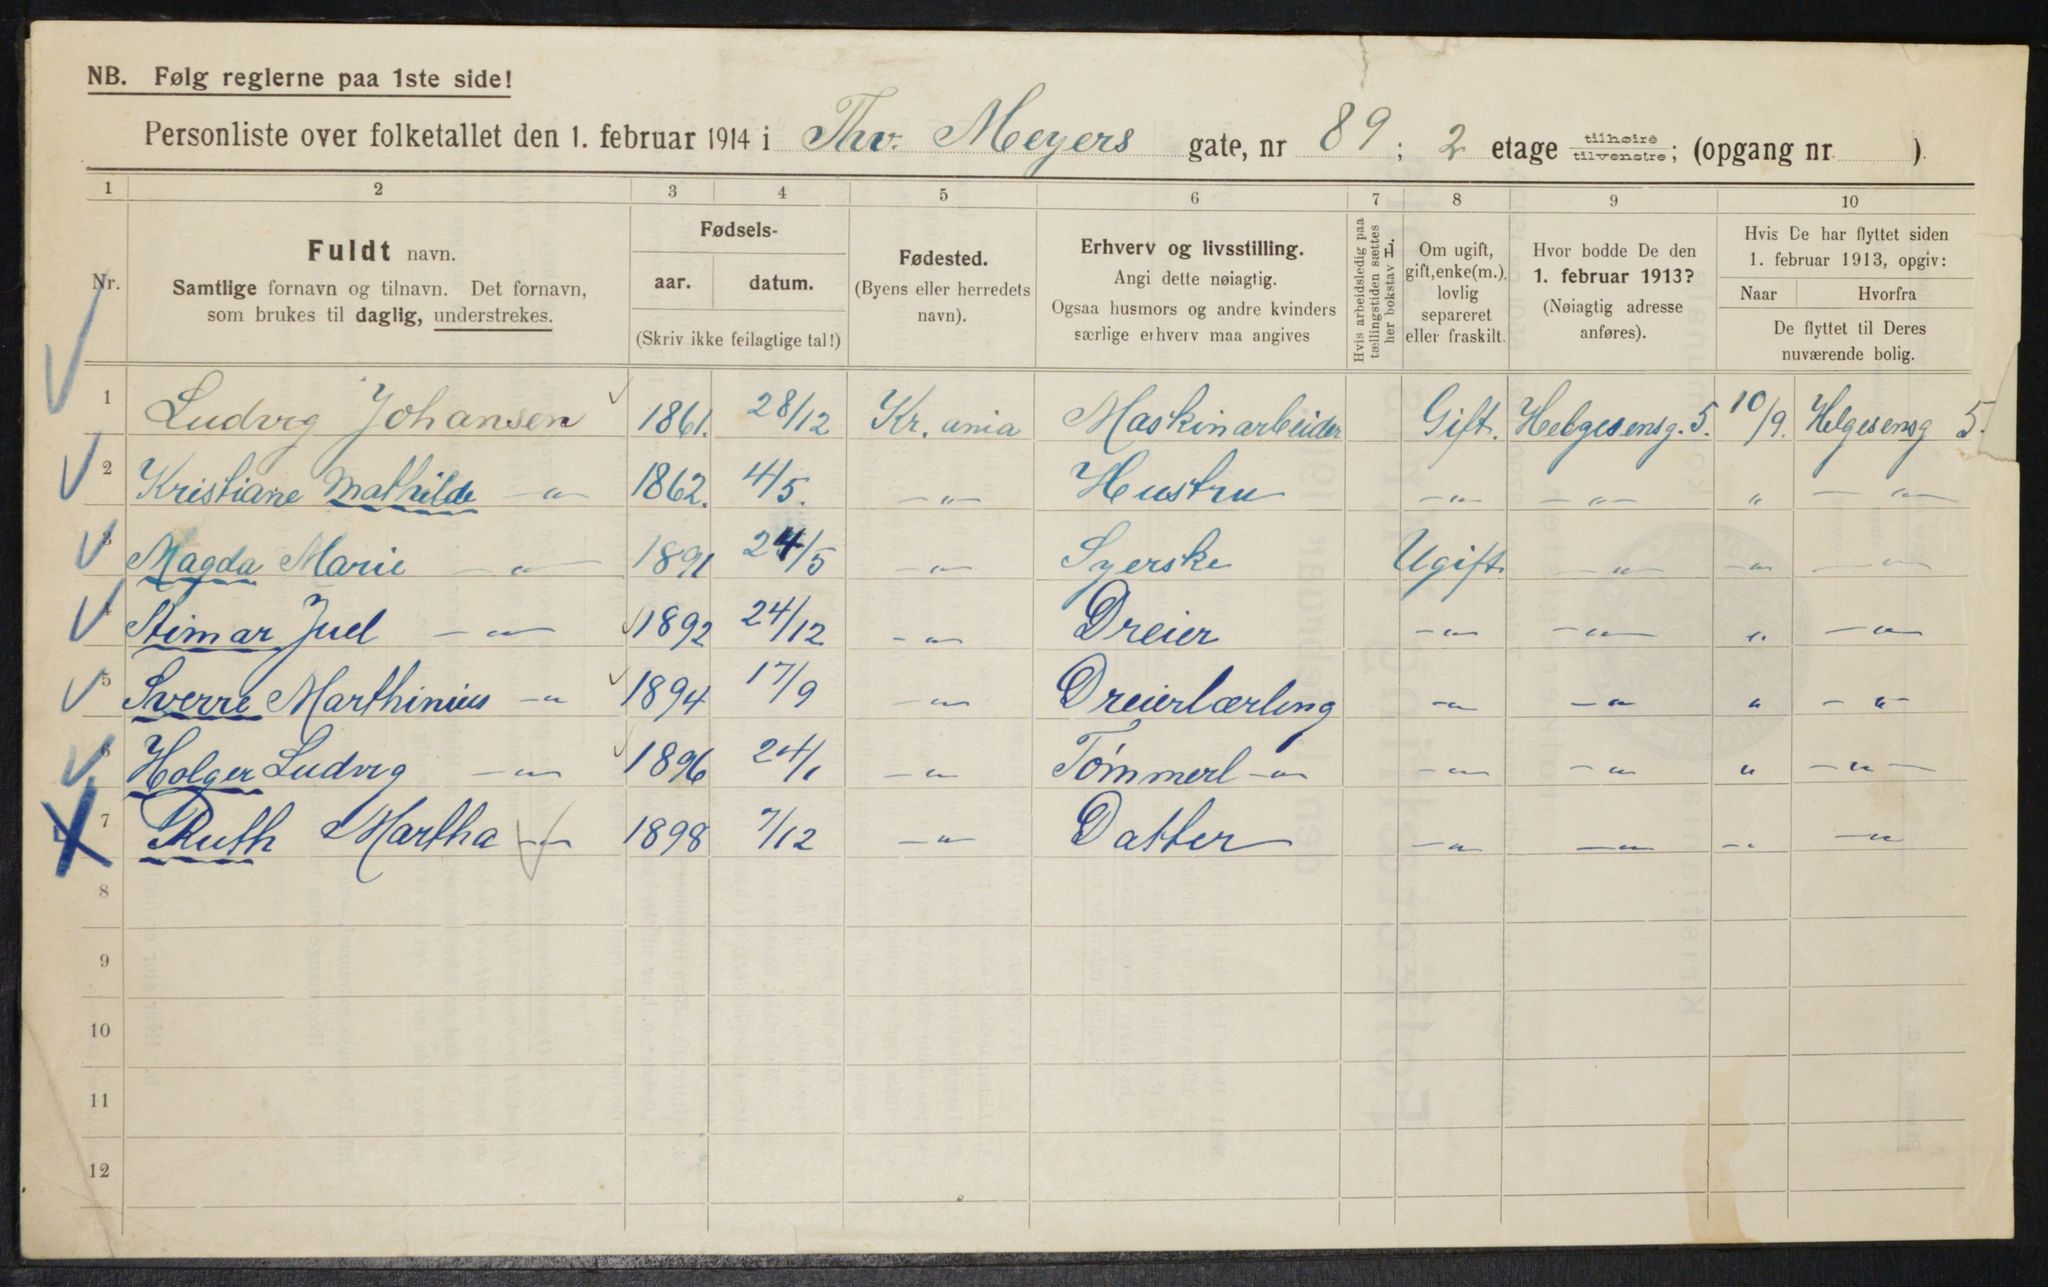 NB. Følg reglerne paa 1ste side!
Personliste over folketallet den 1. februar 1914 i Thv. Meyers gate, nr 89; 2 etage tilhøire tilvenstre; (opgang nr )
1 2 3 4 5 6 7 8 9 10
Nr.
Fuldt navn.
Samtlige fornavn og tilnavn. Det fornavn,
som brukes til daglig, understrekes.
Fødsels-
aar. datum.
(Skriv ikke feilagtige tal!)
Fødested.
(Byens eller herredets
navn).
Erhverv og livsstilling.
Angi dette nøiagtig.
Ogsaa husmors og andre kvinders
særlige erhverv maa angives
Hvis arbeidsledig paa
tællingstiden sættes
her bokstav L.
Om ugift,
gift, enke(m.),
lovlig
separeret
eller fraskilt.
Hvor bodde De den
1. februar 1913?
(Nøiagtig adresse
anføres).
Hvis De har flyttet siden
1. februar 1913, opgiv:
Naar Hvorfra
De flyttet til Deres
nuværende bolig.
1 Ludvig Johansen 1861. 28/12 Kr. ania Maskinarbeider Gift. Helgesensg. 5. 10/9. Helgesensg 5.
2 Kristiane Mathilde —"— 1862. 4/5. —"— Hustru —"— —"— " —"—
3 Magda Marie —"— 1891 24/5 —"— Syerske Ugift. —"— —"— —"—
4 Juel —"— 1892 24/12 —"— Dreier —"— —"— " —"—
5 Sverre Marthinius —"— 1894 17/9 —"— Dreierlærling —"— —"— " —"—
6 Holger Ludvig —"— 1896 24/1 —"— Tømmerl —"— —"— —"— " —"—
7 Ruth Martha —"— 1898 7/12 —"— Datter —"— —"— —"— —"—
8
9
10
11
12